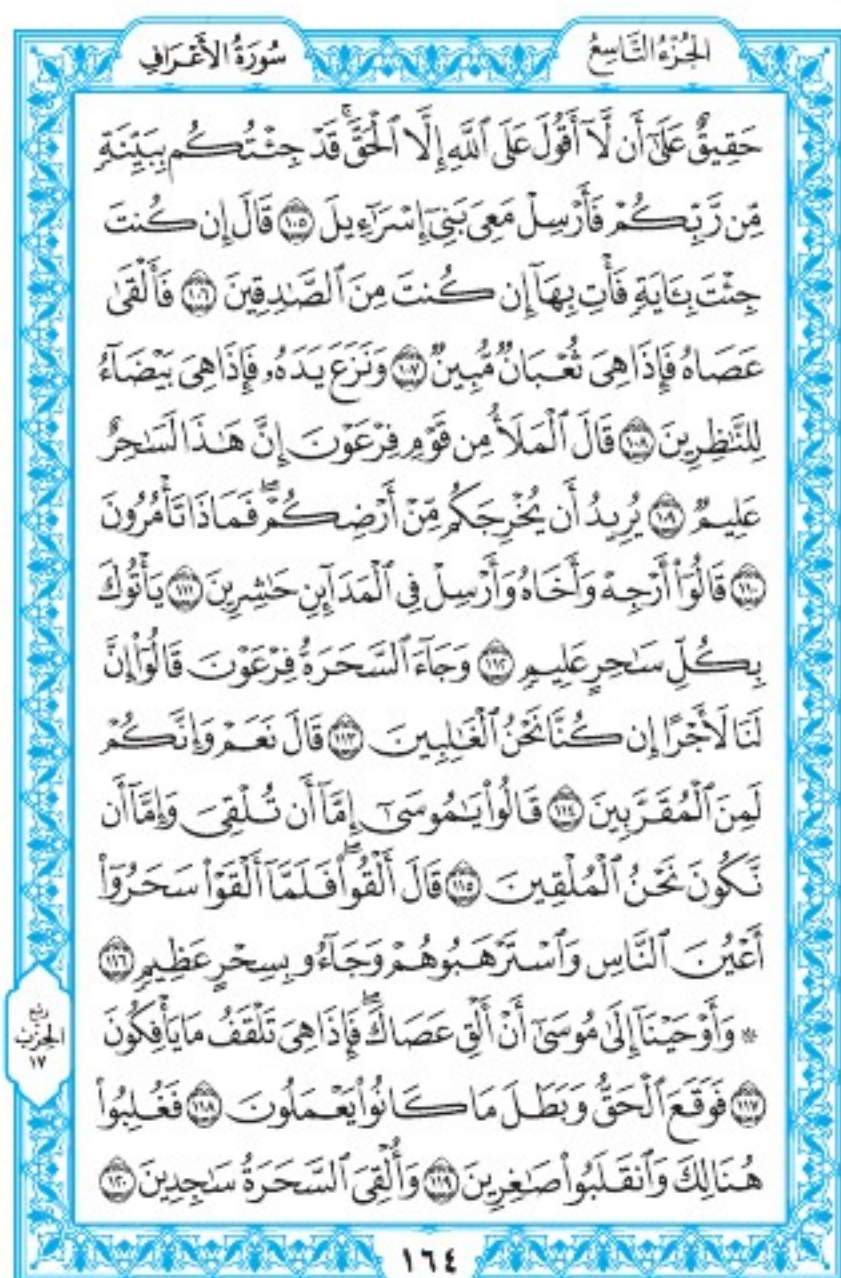 الجُزْءُ التَّاسِعُ
سُورَةُ الأَعْرَافِ
حَقِيقٌ عَلَىٰٓ أَن لَّآ أَقُولَ عَلَى ٱللَّهِ إِلَّا ٱلْحَقَّۚ قَدْ جِئْتُكُم بِبَيِّنَةٍ
مِّن رَّبِّكُمْ فَأَرْسِلْ مَعِىَ بَنِىٓ إِسْرَٰٓءِيلَ ١٠٥ قَالَ إِن كُنتَ
جِئْتَ بِـَٔايَةٍ فَأْتِ بِهَآ إِن كُنتَ مِنَ ٱلصَّٰدِقِينَ ١٠٦ فَأَلْقَىٰ
عَصَاهُ فَإِذَا هِىَ ثُعْبَانٌ مُّبِينٌ ١٠٧ وَنَزَعَ يَدَهُۥ فَإِذَا هِىَ بَيْضَآءُ
لِلنَّٰظِرِينَ ١٠٨ قَالَ ٱلْمَلَأُ مِن قَوْمِ فِرْعَوْنَ إِنَّ هَٰذَا لَسَٰحِرٌ
عَلِيمٌ ١٠٩ يُرِيدُ أَن يُخْرِجَكُم مِّنْ أَرْضِكُمْۖ فَمَاذَا تَأْمُرُونَ
١١٠ قَالُوٓا۟ أَرْجِهْ وَأَخَاهُ وَأَرْسِلْ فِى ٱلْمَدَآئِنِ حَٰشِرِينَ ١١١ يَأْتُوكَ
بِكُلِّ سَٰحِرٍ عَلِيمٍ ١١٢ وَجَآءَ ٱلسَّحَرَةُ فِرْعَوْنَ قَالُوٓا۟ إِنَّ
لَنَا لَأَجْرًا إِن كُنَّا نَحْنُ ٱلْغَٰلِبِينَ ١١٣ قَالَ نَعَمْ وَإِنَّكُمْ
لَمِنَ ٱلْمُقَرَّبِينَ ١١٤ قَالُوا۟ يَٰمُوسَىٰٓ إِمَّآ أَن تُلْقِىَ وَإِمَّآ أَن
نَّكُونَ نَحْنُ ٱلْمُلْقِينَ ١١٥ قَالَ أَلْقُوا۟ۖ فَلَمَّآ أَلْقَوْا۟ سَحَرُوٓا۟
أَعْيُنَ ٱلنَّاسِ وَٱسْتَرْهَبُوهُمْ وَجَآءُو بِسِحْرٍ عَظِيمٍ ١١٦
۞ وَأَوْحَيْنَآ إِلَىٰ مُوسَىٰٓ أَنْ أَلْقِ عَصَاكَۖ فَإِذَا هِىَ تَلْقَفُ مَا يَأْفِكُونَ
١١٧ فَوَقَعَ ٱلْحَقُّ وَبَطَلَ مَا كَانُوا۟ يَعْمَلُونَ ١١٨ فَغُلِبُوا۟
هُنَالِكَ وَٱنقَلَبُوا۟ صَٰغِرِينَ ١١٩ وَأُلْقِىَ ٱلسَّحَرَةُ سَٰجِدِينَ ١٢٠
ربع
الحزب
١٧
١٦٤